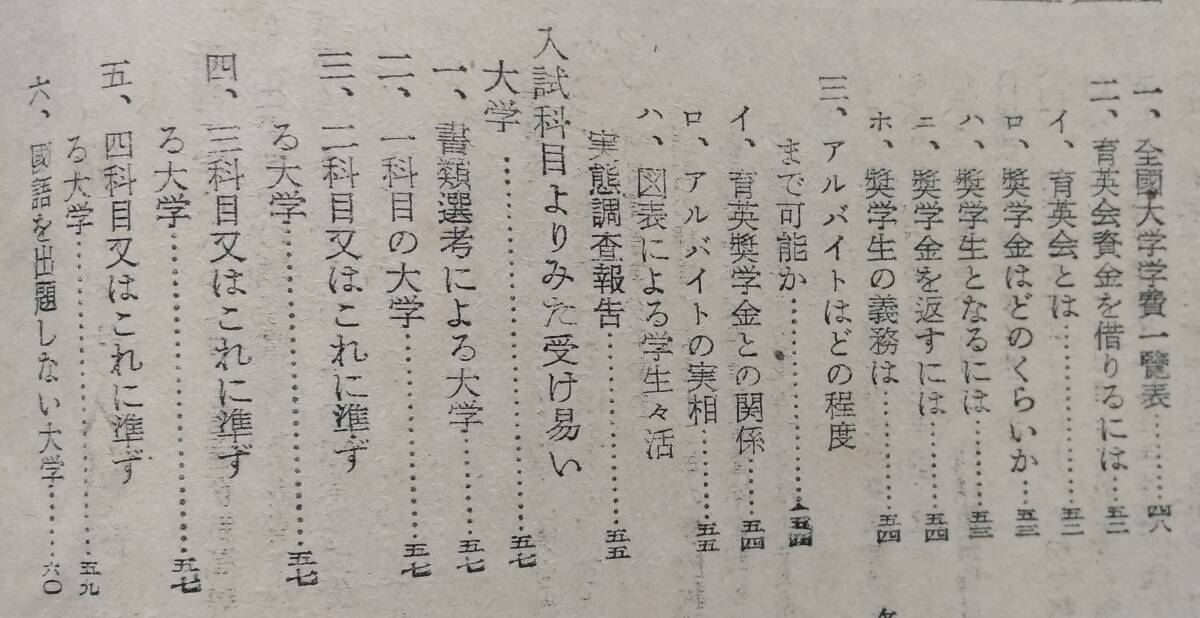 一、全國大学学費一覽表………四八
二、育英会資金を借りるには…五二
イ、育英会とは……………五二
ロ、奬学金はどのくらいか…五三
ハ、奬学生となるには………五三
ニ、奬学金を返すには………五四
ホ、奬学生の義務は…………五四
三、アルバイトはどの程度
まで可能か………………五四
イ、育英奬学金との関係……五四
ロ、アルバイトの実相………五五
ハ、図表による学生々活
実態調査報告……………五五
入試科目よりみた受け易い
大学………………………五七
一、書類選考による大学……五七
二、一科目の大学……………五七
三、二科目又はこれに準ず
る大学……………………五七
四、三科目又はこれに準ず
る大学……………………五七
五、四科目又はこれに準ず
る大学……………………五九
六、國語を出題しない大学……六〇